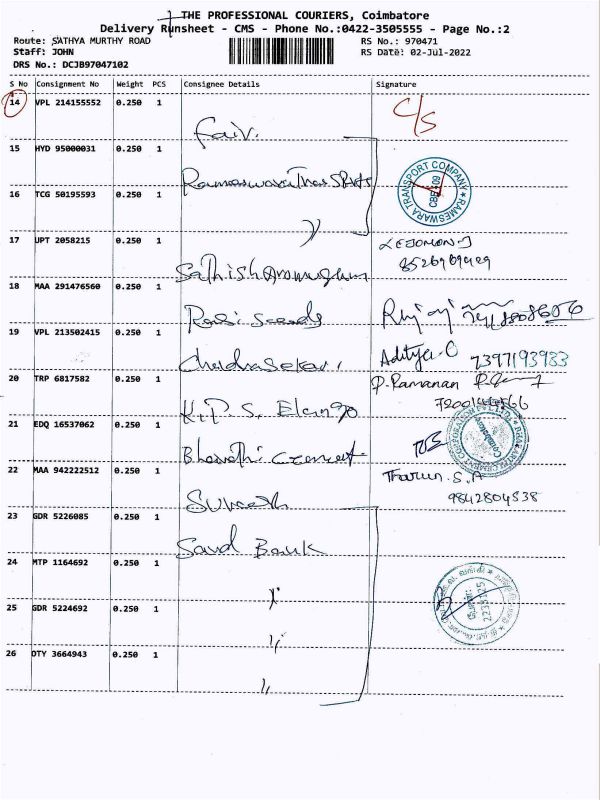 THE PROFESSIONAL COURIERS, Coimbatore
Delivery Runsheet - CMS - Phone No.:0422-3505555 - Page No.:2
Route: SATHYA MURTHY ROAD RS No.: 970471
Staff: JOHN RS Date: 02-Jul-2022
DRS No.: DCJB97047102
S No Consignment No Weight PCS Consignee Details Signature
14 VPL 214155552 0.250 1 Fair. C/S
15 HYD 95000031 0.250 1 Rameswara
RAMESWARA TRANSPORT COMPANY
16 TCG 50195593 0.250 1 "
17 UPT 2058215 0.250 1 Sathish Arumugham
18 MAA 291476560 0.250 1 Rasi Seeds
19 VPL 213502415 0.250 1 Chandrasekar. Aditya.C 7397193933
20 TRP 6817582 0.250 1 K.P.S. Elango P. Ramanan
21 EDQ 16537062 0.250 1 Bharathi Cement
Coimbatore
22 MAA 942222512 0.250 1 Suresh Tharun.S.A
9842804838
23 GDR 5226085 0.250 1 Bank
24 MTP 1164692 0.250 1 "
25 GDR 5224692 0.250 1 "
26 OTY 3664943 0.250 1 "